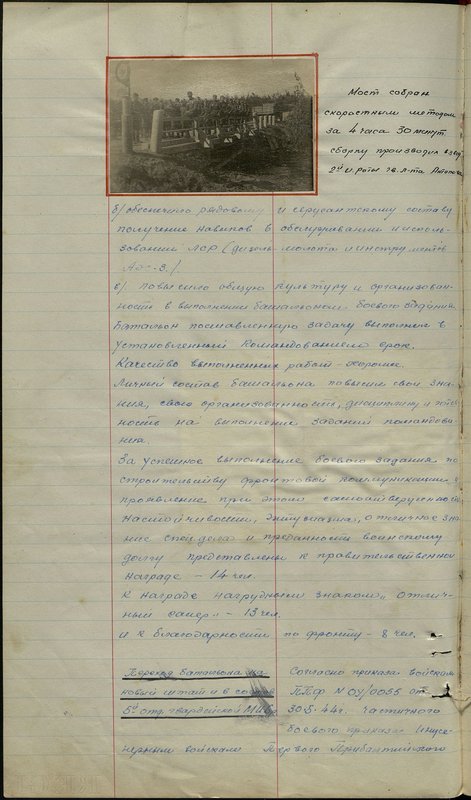 Мост собран
скоростным методом
за 4 часа 30 минут
сборку производил взвод
2ой и. роты гв. л-та
б/ обеспечило рядовому и сержантскому составу
получение навыков в обслуживании и исполь-
зовании ЛСР (дизель-молота и инструментов
в) повысило общую культуру и организован-
ность в выполнении батальоном боевого задания
Батальон поставленную задачу выполнил в
установленный командованием срок.
Качество выполненных работ - хорошее.
Личный состав батальона повысил свои зна-
ния, свою организованность, дисциплину и готов
ность на выполнение заданий командова
ния.
За успешное выполнение боевого задания по
строительству фронтовой коммуникации и
проявление при этом самоотверженность
настойчивости, энтузиазма, отличное зна
ние спец дела и преданность воинскому
долгу представлены к правительственной
награде - 14 чел.
К награде нагрудным знаком „Отлич-
ный сапер" - 13 чел.
и к благодарности по фронту - 8 чел.
Переход батальона на
новый штат и в состав
5ой отд. гвардейской МИБр
Согласно приказа войскам
ППф № ОУ/0055 от
30.5.44г. частичного
боевого приказа Инже-
нерным войскам Первого Прибалтийского